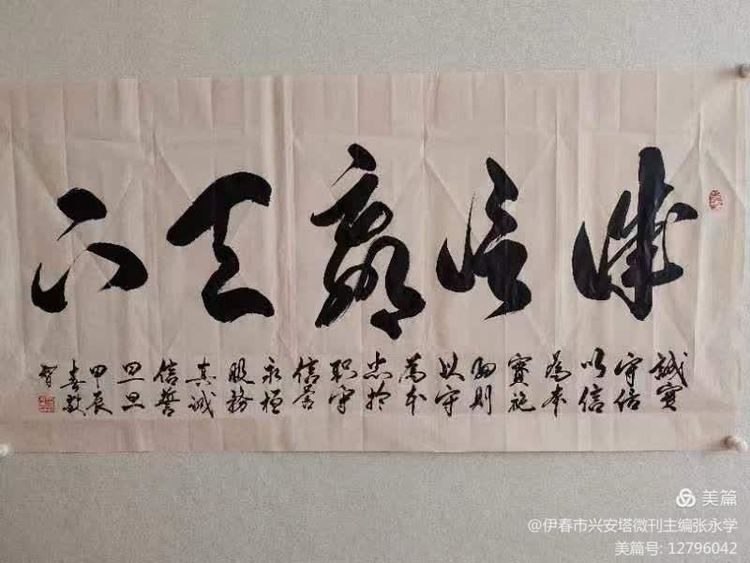 诚信赢天下
誠實
守信
以信
為本
實施
細則
以守
為本
忠於
职守
信誉
永恒
服務
真诚
信誓
旦旦
甲辰
春
智
美篇
@伊春市兴安塔微刊主编张永学
美篇号: 12796042